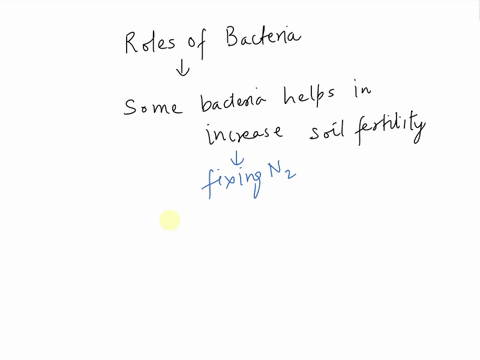 Roles of Bacteria
↓
Some bacteria helps in
increase soil fertility
↓
fixing N₂